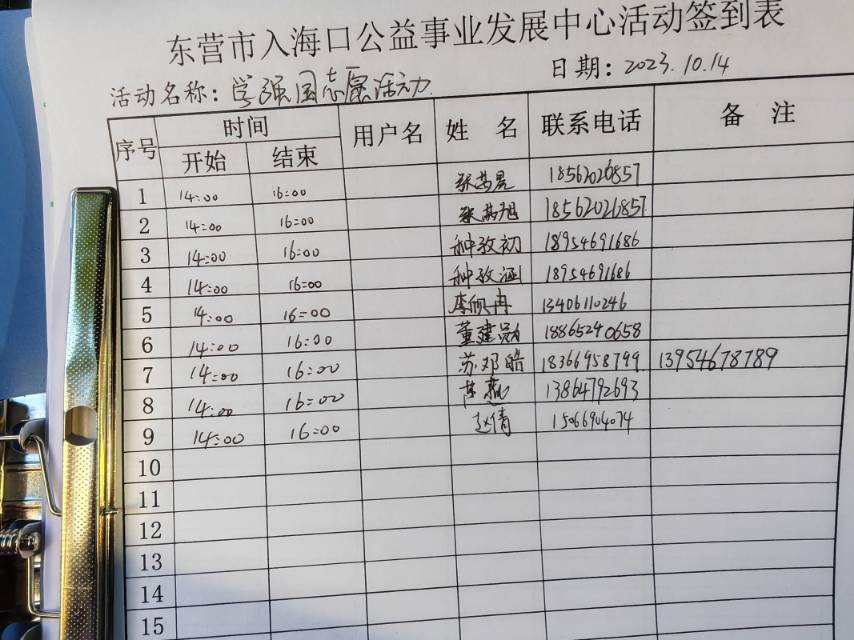 东营市入海口公益事业发展中心活动签到表
活动名称：学强国志愿活动 日期：2023.10.14
序号 时间 用户名 姓 名 联系电话 备 注
开始 结束
1 14:00 16:00 18562026857
2 14:00 16:00 18562026857
3 14:00 16:00 种孜初 18954691686
4 14:00 16:00 种孜涵 18954691686
5 14:00 16:00 13406110246
6 14:00 16:00 董建勋 18865290658
7 14:00 16:00 苏邓皓 18366958799 13954678789
8 14:00 16:00 13864792693
9 14:00 16:00 赵倩 15066904074
10
11
12
13
14
15